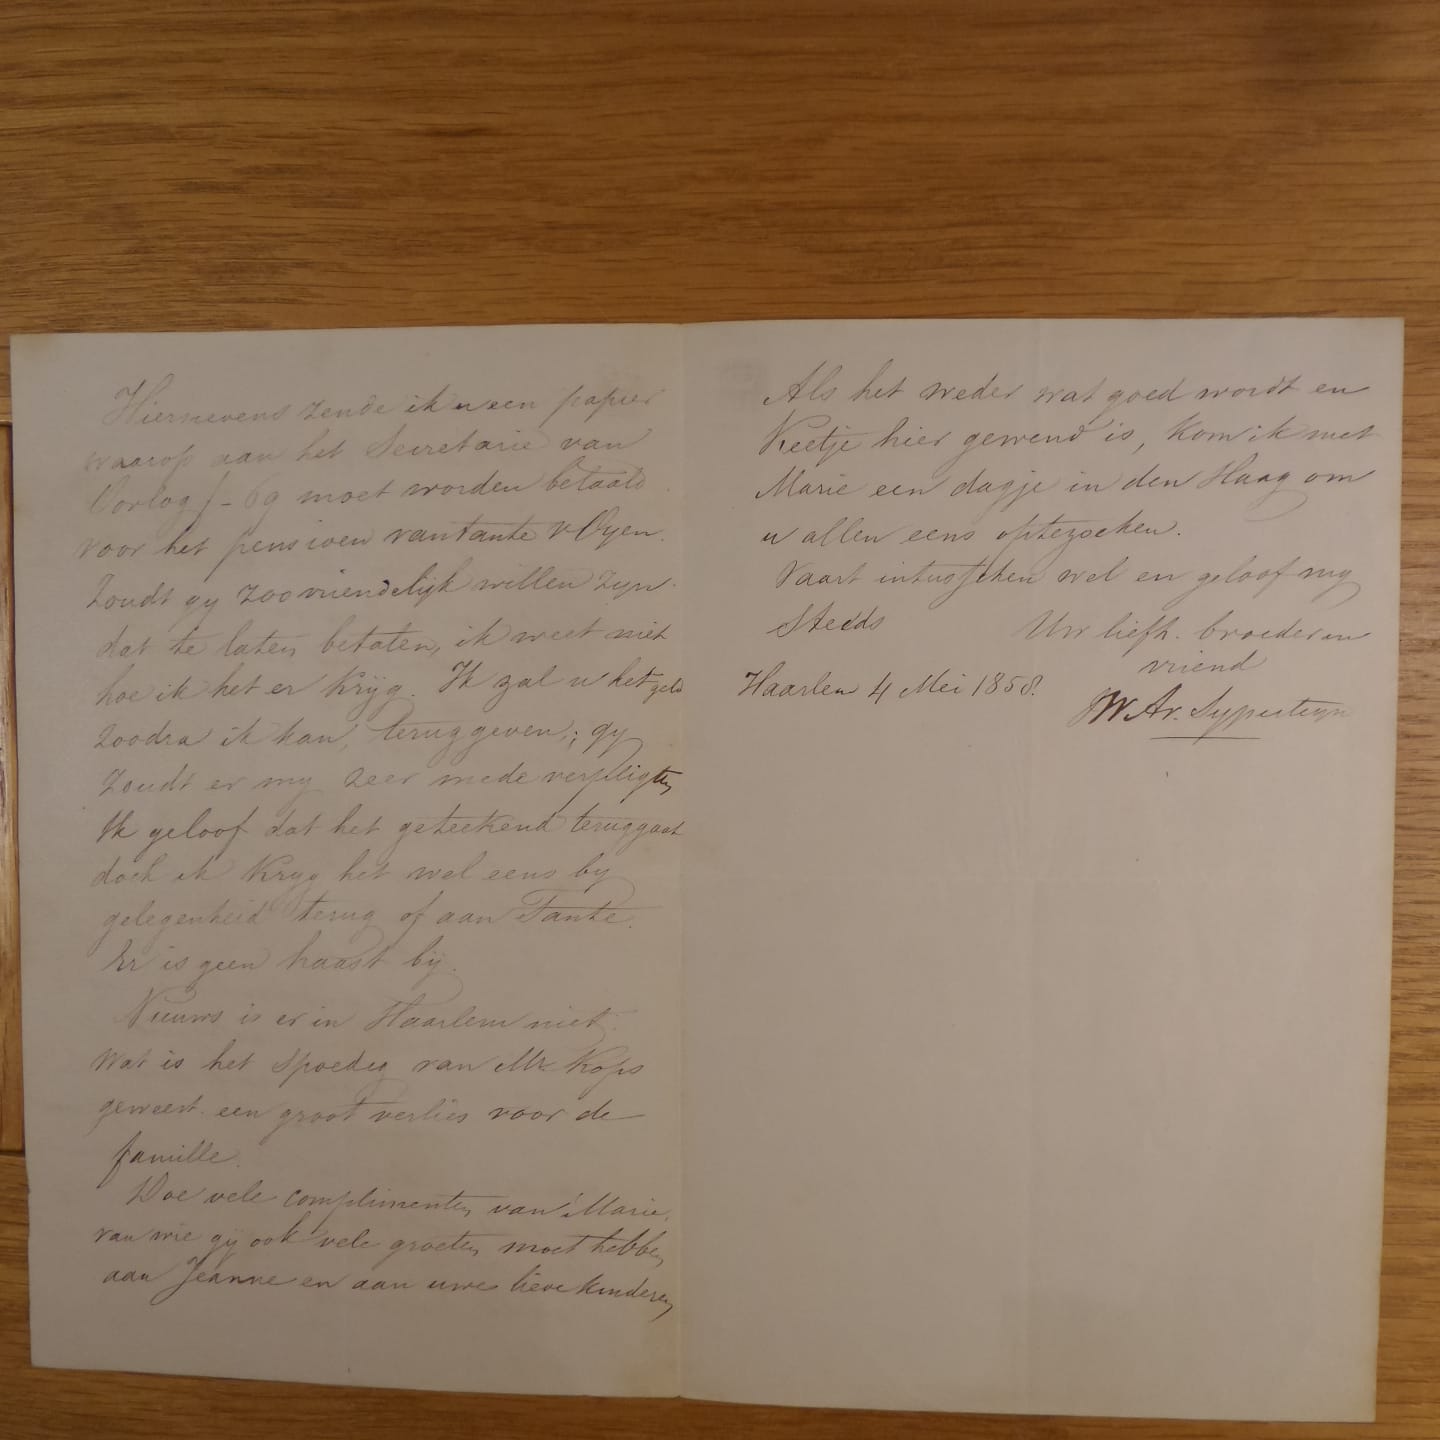 Hiernevens zende ik u een papier
waarop aan het Secretarie van
Oorlog f - 69 moet worden betaald
voor het pensioen van tante v Oyen.
Zoudt gy zoo vriendelijk willen zyn
dat te laten betalen, ik weet niet
hoe ik het er krijg. Ik zal u het geld
zoodra ik kan, teruggeven; gy
zoudt er my zeer mede verpligten
Ik geloof dat het geteekend teruggaat
doch ik kryg het wel eens by
gelegenheid terug of aan Tante.
Er is geen haast bij.
Nieuws is er in Haarlem niet.
Wat is het spoedig van Mr Kops
geweest. een groot verlies voor de
famille.
Doe vele complimenten van Marie,
van wie gij ook vele groeten moet hebben,
aan Jeanne en aan uwe lieve kinderen,
Als het weder wat goed wordt en
Keetje hier gewend is, kom ik met
Marie een dagje in den Haag om
u allen eens optezoeken.
Vaart intusschen wel en geloof my
steeds
Uw liefh. broeder en
vriend
Haarlem 4 Mei 1858.
Sypesteyn